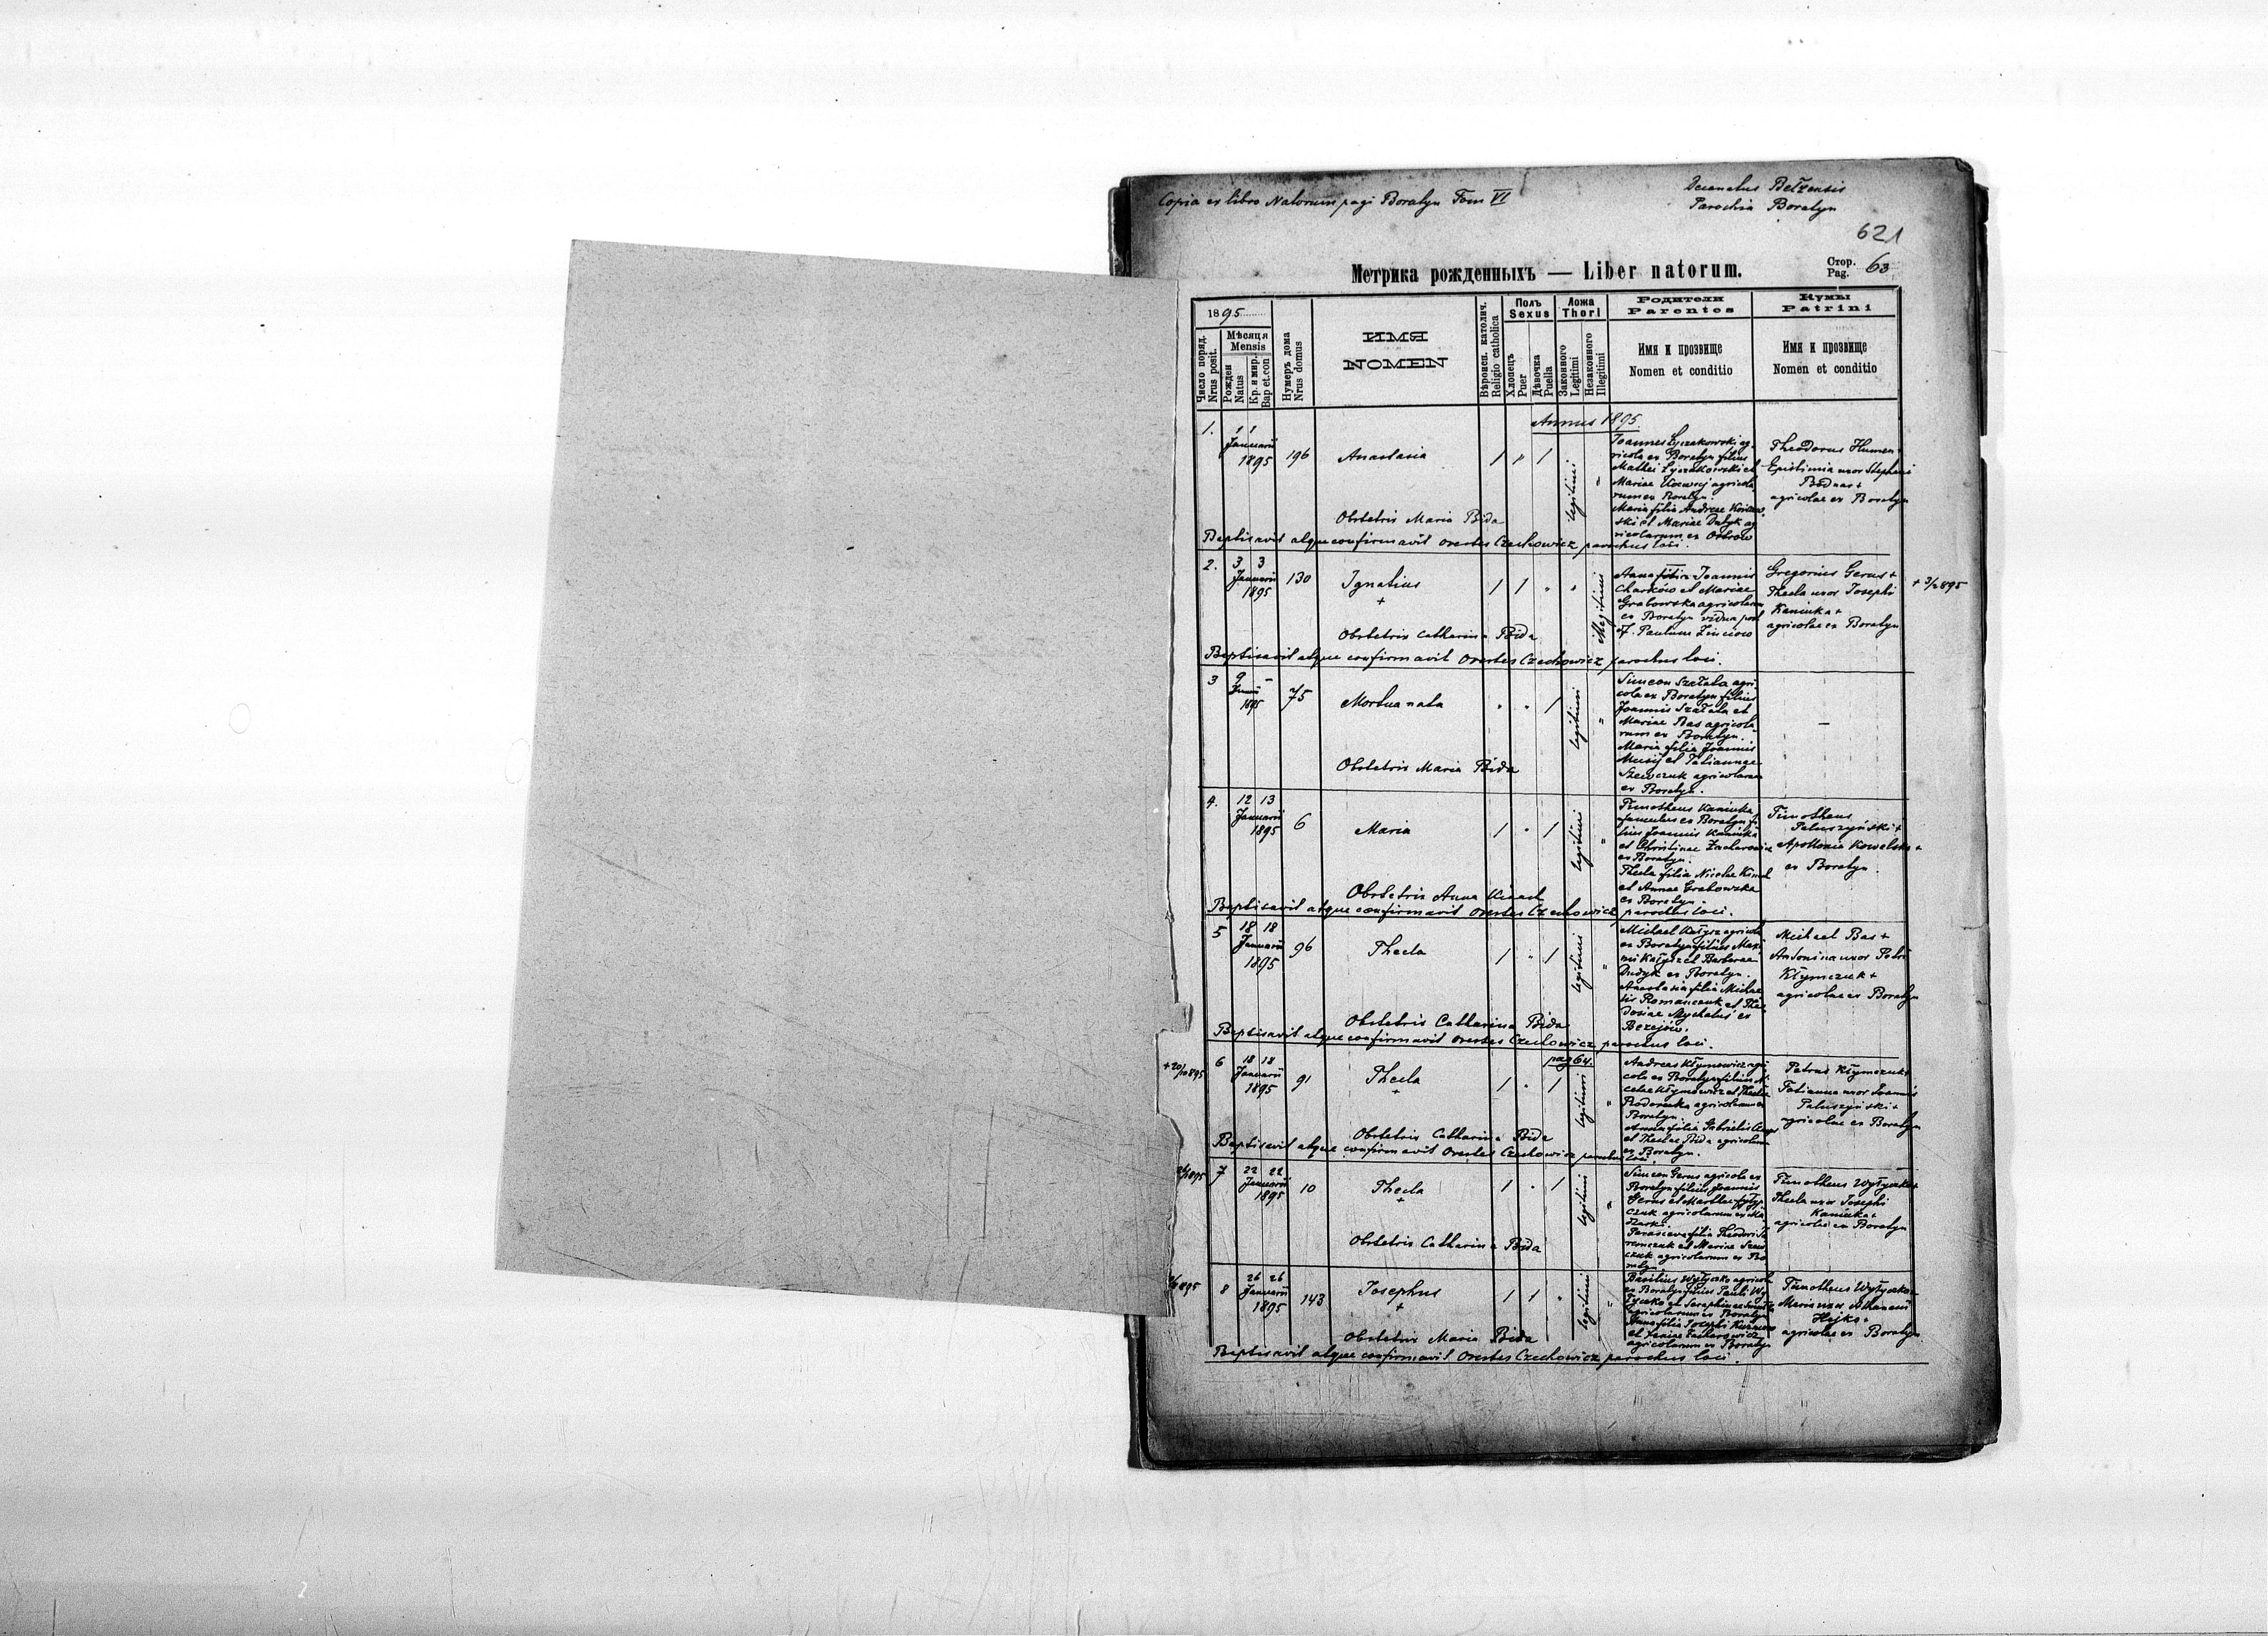 Copia ex libro Natorum pagi Boratyn Tom VI
Decanatus Belzensis
Parochia Boratyn
621
Метрика рожденныхъ — Liber natorum.
Стор. Pag. 63
1895
Число поряд. Nrus posit.
Мѣсяця Mensis
Рожден Natus
Кр. и мѵр. Bap et. con
Нумеръ дома Nrus domus
ИМЯ
NOMEN
Вѣроисп. католич. Religio catholica
Полъ Sexus
Хлопецъ Puer
Дѣвочка Puella
Ложа Thori
Законного Legitimi
Незаконного Illegitimi
Родители
Parentes
Имя и прозвище
Nomen et conditio
Кумы
Patrini
Имя и прозвище
Nomen et conditio
Annus 1895.
1. 1 1 Januarii 1895 196 Anastasia 1 " 1 legitimi "
Joannes Łyczakowski ag-
ricola ex Boratyn filius
Mathei Łyczakowski et
Mariae agricola
rum ex Boratyn.
Maria filia Andreae
ski et Mariae Dudyk ag
ricolarum ex Ostrów
Theodorus Humen +
Epistimia uxor Stephani
Bodnar +
agricolae ex Boratyn
Obstetrix Maria Bida
Baptisavit atque confirmavit Orestes Czechowicz parochus loci.
2. 3 3 Januarii 1895 130 Ignatius + 1 1 " " Illegitimi
Anna filia Joannis
Charkow et Mariae
Grabowska agricolarum
ex Boratyn vidua post
f. Paulum Zinciow
Gregorius Gerus +
Thecla uxor Josephi
Kaniuka +
agricolae ex Boratyn
+ 3/2 895
Obstetrix Catharina Bida
Baptisavit atque confirmavit Orestes Czechowicz parochus loci.
3 9 – Januarii 1895 75 Mortua nata " " 1 legitimi "
Simeon Szałała agri
cola ex Boratyn filius
Joannis Szałała et
Mariae Bas agricola
rum ex Boratyn.
Maria filia Joannis
Musij et Tatiannae
Szewczuk agricolarum
ex Boratyn.
–
Obstetrix Maria Bida
4. 12 13 Januarii 1895 6 Maria 1 " 1 legitimi "
Timotheus Kaniuka
famulus ex Boratyn fi
lius Joannis Kaniuka
et Christinae Zacharowicz
ex Boratyn.
Thecla filia Nicolai
et Annae Grabowska
ex Boratyn.
Timotheus
Paluszyński +
Apollonia Kowalska +
ex Boratyn
Obstetrix Anna
Baptisavit atque confirmavit Orestes Czechowicz parochus loci.
5 18 18 Januarii 1895 96 Thecla 1 " 1 legitimi "
Michael Kałysz agricola
ex Boratyn filius Maxi
mi Kałysz et Barbarae
Dudyk ex Boratyn.
Anastasia filia Michae
lis Romanczuk et Theo
dosiae Mychaluś ex
Bezejów.
Michael Bas +
Antonina uxor Petri
Kłymczuk +
agricolae ex Boratyn
Obstetrix Catharina Bida
Baptisavit atque confirmavit Orestes Czechowicz parochus loci.
pag 64.
+ 20/10 895 6 18 18 Januarii 1895 91 Thecla + 1 " 1 legitimi "
Andreas Kłymowicz agri
cola ex Boratyn filius Ni
colae Kłymowicz et Theclae
agricolarum ex
Boratyn.
Anna filia Gabrielis
et Theclae Bida agricolarum
ex Boratyn.
Petrus Kłymczuk +
Tatianna uxor Joannis
Paluszyński +
agricolae ex Boratyn
Obstetrix Catharina Bida
Baptisavit atque confirmavit Orestes Czechowicz parochus loci.
895 7 22 22 Januarii 1895 10 Thecla + 1 " 1 legitimi "
Simeon Gerus agricola ex
Boratyn filius Joannis
Gerus et Marthae
czuk agricolarum ex

Parasceva filia Theodori
remczuk et Mariae Szew
czuk agricolarum ex Bo
ratyn.
Timotheus Wytyczko +
Thecla uxor Josephi
Kaniuka +
agricolae ex Boratyn
Obstetrix Catharina Bida
895 8 26 26 Januarii 1895 143 Josephus + 1 1 " legitimi "
Basilius Wytyczko agricola
ex Boratyn filius Pauli Wy
tyczko et Seraphinae
agricolarum ex Boratyn
Anna filia Josephi
et Xeniae Zacharowicz
agricolarum ex Boratyn
Timotheus Wytyczko +
Maria uxor Athanasii
Hejko +
agricolae ex Boratyn
Obstetrix Maria Bida
Baptisavit atque confirmavit Orestes Czechowicz parochus loci.